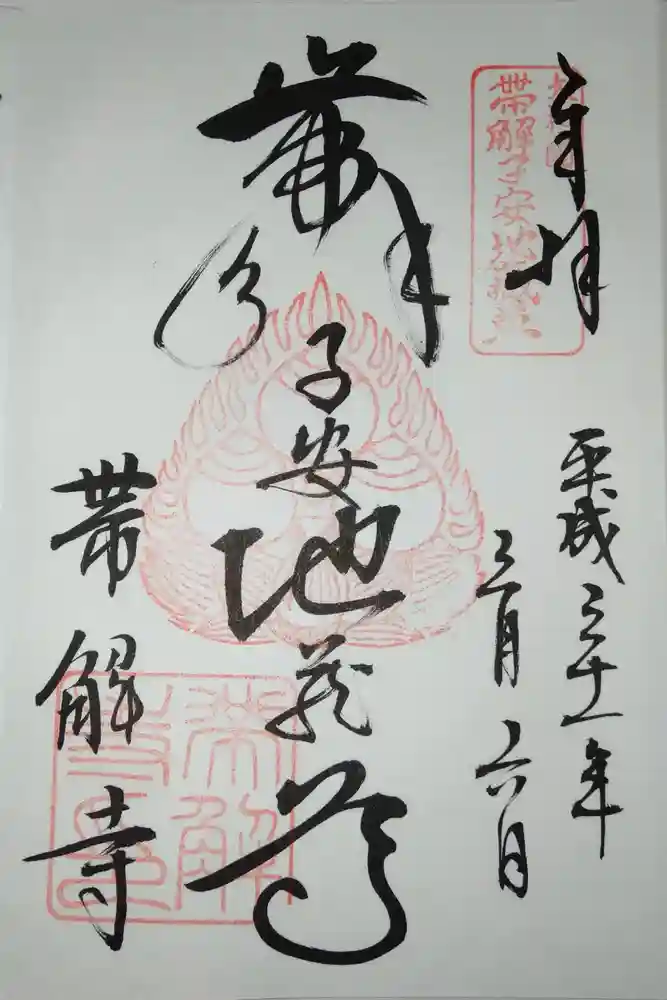 奉拝
帯解子安地蔵尊
平成三十一年
三月六日
帯解
子安地蔵尊
帯解寺
帯解
寺印